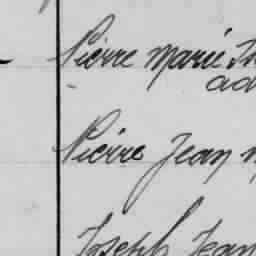 Pierre Marie
Pierre Jean
Joseph Jean